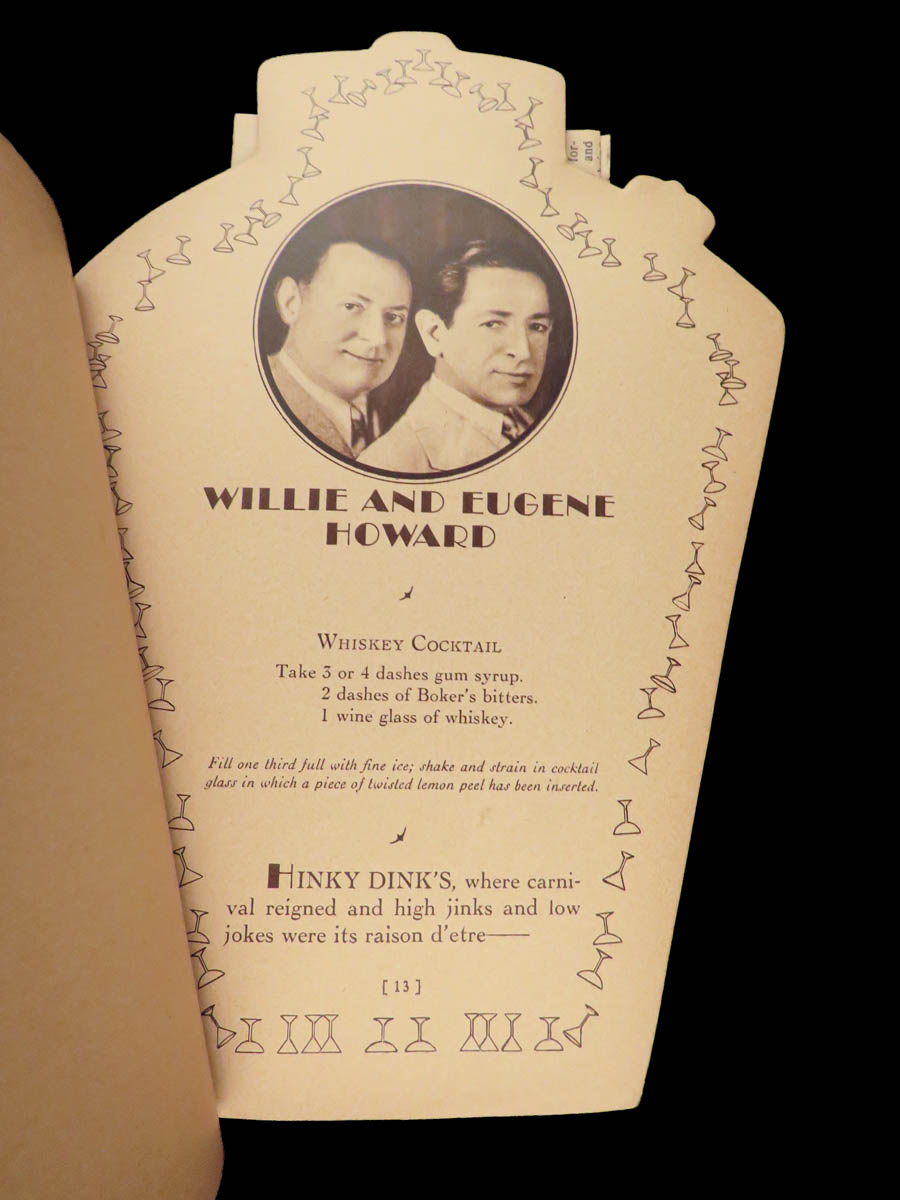 for-
and
WILLIE AND EUGENE
HOWARD
WHISKEY COCKTAIL
Take 3 or 4 dashes gum syrup.
2 dashes of Boker's bitters.
1 wine glass of whiskey.
Fill one third full with fine ice; shake and strain in cocktail
glass in which a piece of twisted lemon peel has been inserted.
HINKY DINK'S, where carni-
val reigned and high jinks and low
jokes were its raison d'etre——
[ 13 ]